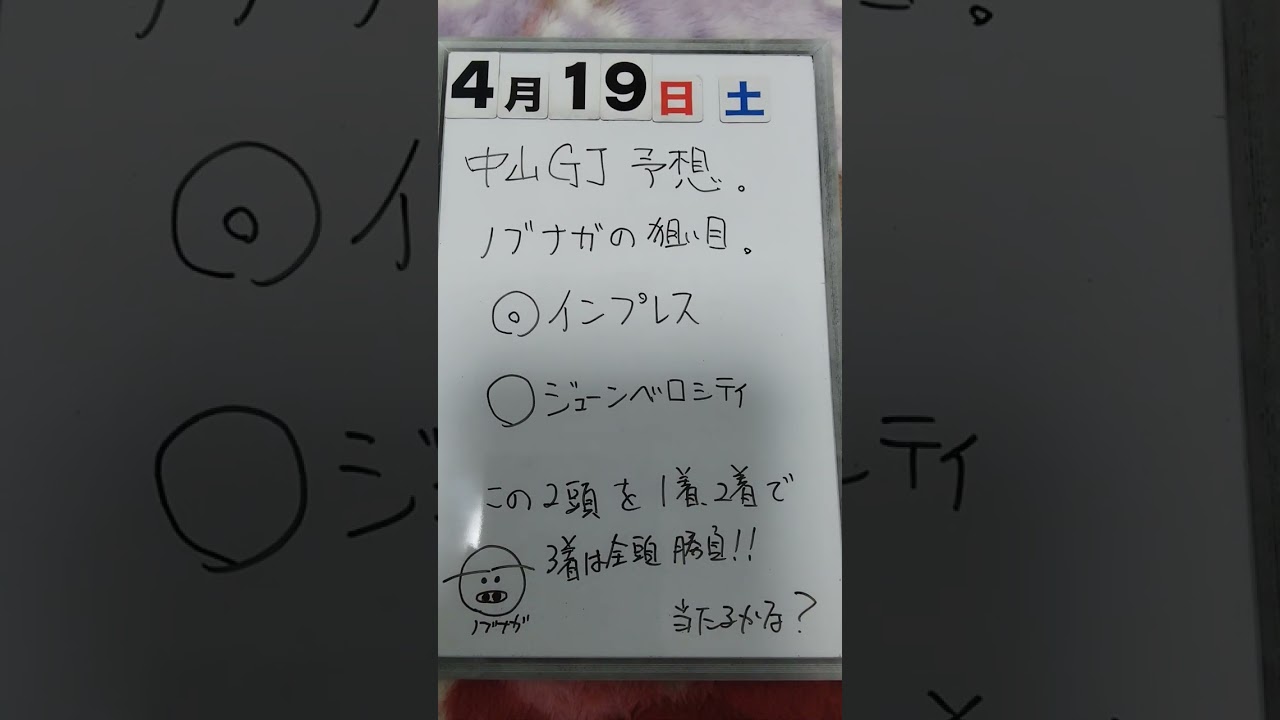 4月19日 土
中山GJ 予想。
ノブナガの狙い目。
◎インプレス
○ジューンベロシティ
この2頭を1着、2着で
3着は全頭勝負!!
ノブナガ
当たるかな?